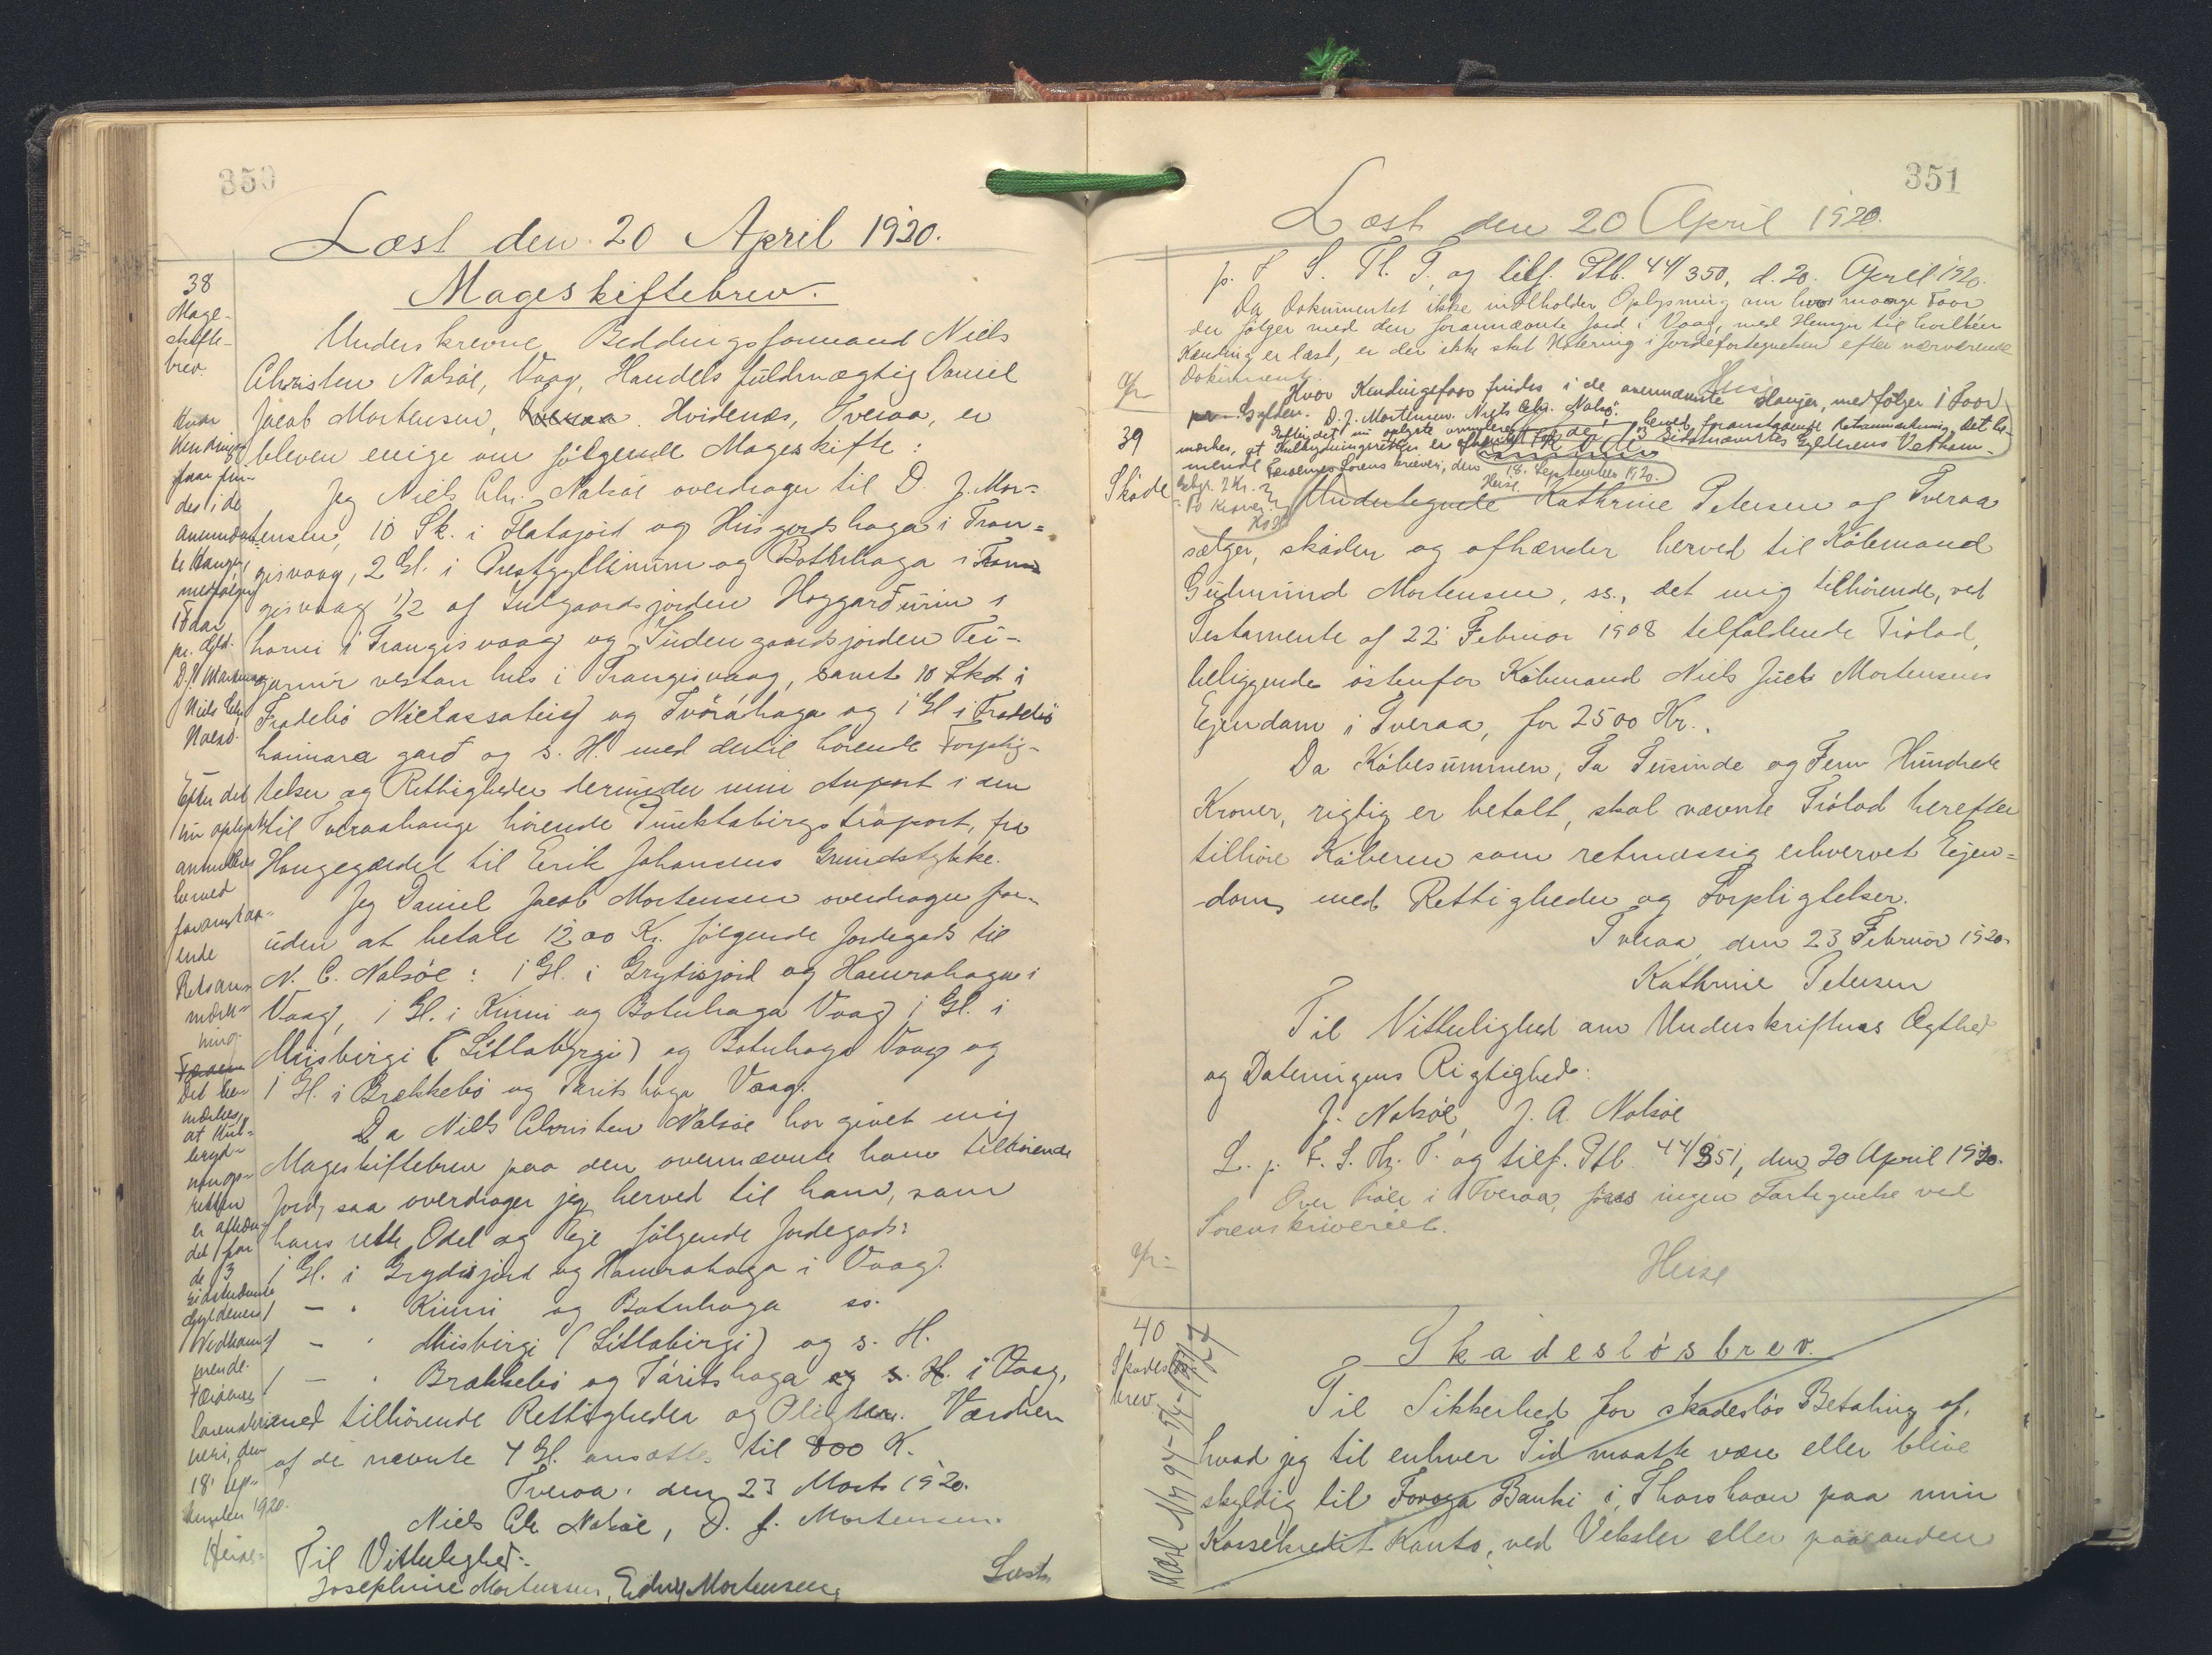 350
Læst den 20 April 1920.
38
Mage-
skifte-
brev.
Mageskiftebrev.
Underskrevne Beddingsformand Niels
Christen Nolsøe, Vaag, Handelsfuldmægtig Daniel
Jacob Mortensen, Hvidenæs, Tveraa, er
bleven enige om følgende Mageskifte:
Jeg Niels Chr. Nolsøe overdrager til D. J. Mor-
tensen, 10 Sk. i Flatajørd og Húsgardshaga i Tran-
gisvaag, 2 Gl. i Prestgyllinum og Botnhaga i Tran-
gisvaag 1/2 af Sutgaardsjorden Heggardurin i
horni i Trangisvaag og Sudengaardsjorden Tei-
garnir vestan hus i Trangisvaag, samt 10 Skd i
Frodebö Nielassateig og Tvöráhaga og 1 Gl i Frodebö
hamara gard og s. H. med dertil hörende Forplig-
telser og Rettigheder derunder min Anpart i den
til Tveraahauge hörende
Haugegærdet til Eirik Johansens Grundstykke.
Jeg Daniel Jacob Mortensen overdrager for-
uden at betale 1200 Kr. følgende Jordegods til
N. C. Nolsöe: 1 Gl. i Grytisjörd og Hamrahaga i
Vaag, 1 Gl. i Kinni og Botnhaga Vaag 1 Gl. i
Miisbirgi (Litlabyrgi) og Botnhaga Vaag og
1 Gl. i Brekkebö og Taritshaga Vaag.
Da Niels Christen Nolsöe har givet mig
Mageskiftebrev paa den ovennævnte ham tilhörende
Jord, saa overdrager jeg herved til ham, som
hans rette Odel og Eje følgende Jordegods:
1 Gl. i Grydisjörd og Hamrahaga i Vaag.
1 — " Kinni og Botnhaga ss.
1 — " Miisbirgi (Litlabirgi) og s. H.
1 — " Brekkebö og Táritshaga og s. H. i Vaag,
med tilhörende Rettigheder og Pligter. Værdien
af de nævnte 4 Gl. ansættes til 800 K.
Tveraa, den 23 Marts 1920.
Niels Chr Nolsöe, D. J. Mortensen.
Til Vitterlighed:
Josephine Mortensen, Edny Mortensen
Læst
Hvor
Kendinge
faar fin-
des i de
ovennævn-
te Hauger,
medfølger
1 Faar
pr. Gyld.
D. J. Mortensen
Niels Chr.
Nolsö.
Efter det
nu oplyste
annulleres
herved
foranstaa-
ende
Retsan-
mærk-
ning.
Det be-
mærkes,
at Kul-
bryd-
nings-
retten
er afhæn-
det for
de 3
sidstnævnte
Gyldeners
Vedkom-
mende.
Færøernes
Sorenskri-
veri, den
18' Sep-
tember 1920.
Heise
351
Læst den 20 April 1920.
p. F. S. Th. T. og tilf. Ptb. 44/350, d. 20. April 1920.
Da Dokumentet ikke indeholder Oplysning om hvor mange Faar
der følger med den forannævnte Jord i Vaag, med Hensyn til hvilken
Kending er læst, er der ikke sket Notering i Jordefortegnelsen efter nærværende
Dokument.
Heise
Hvor Kendingefaar findes i de ovennævnte Hauger, medfølger 1 Faar
pr. Gylden. D. J. Mortensen. Niels Chr. Nolsö.
Efter det nu oplyste annulleres herved foranstaaende Retsanmærkning. Det be-
mærkes, at Kulbrydningsretten er afhændet for de 3 sidstnævnte Gyldeners Vedkom-
mende Færøernes Sorenskriveri, den 18. September 1920.
Heise
39
Skøde
Undertegnede Kathrine Petersen af Tveraa
sælger, skøder og afhænder herved til Købmand
Gudmund Mortensen, ss., det mig tilhörende, ved
Testamente af 22 Februar 1908 tilfaldende Trölad,
beliggende östenfor Købmand Niels Juel Mortensens
Ejendom i Tveraa, for 2500 Kr.
Da Købesummen, To Tusinde og Fem Hundrede
Kroner, rigtig er betalt, skal nævnte Trölad herefter
tilhöre Køberen som retmæssig erhvervet Ejen-
dom, med Rettigheder og Forpligtelser.
Tveraa, den 23 Februar 1920.
Kathrine Petersen
Til Vitterlighed om Underskriftens Ægthed
og Dateringens Rigtighed:
J. Nolsöe, J. A. Nolsöe
L. p. F. S. Th. T. og tilf. Ptb. 44/351, den 20 April 1920.
Over Tröle i Tveraa, føres ingen Fortegnelse ved
Sorenskriveriet.
Heise
40
Skadeslös-
brev
Skadeslösbrev.
Til Sikkerhed for skadeslös Betaling af,
hvad jeg til enhver Tid maatte være eller blive
skyldig til Foroya Banki i Thorshavn paa min
Kassekredit Konto, ved Veksler eller paa anden